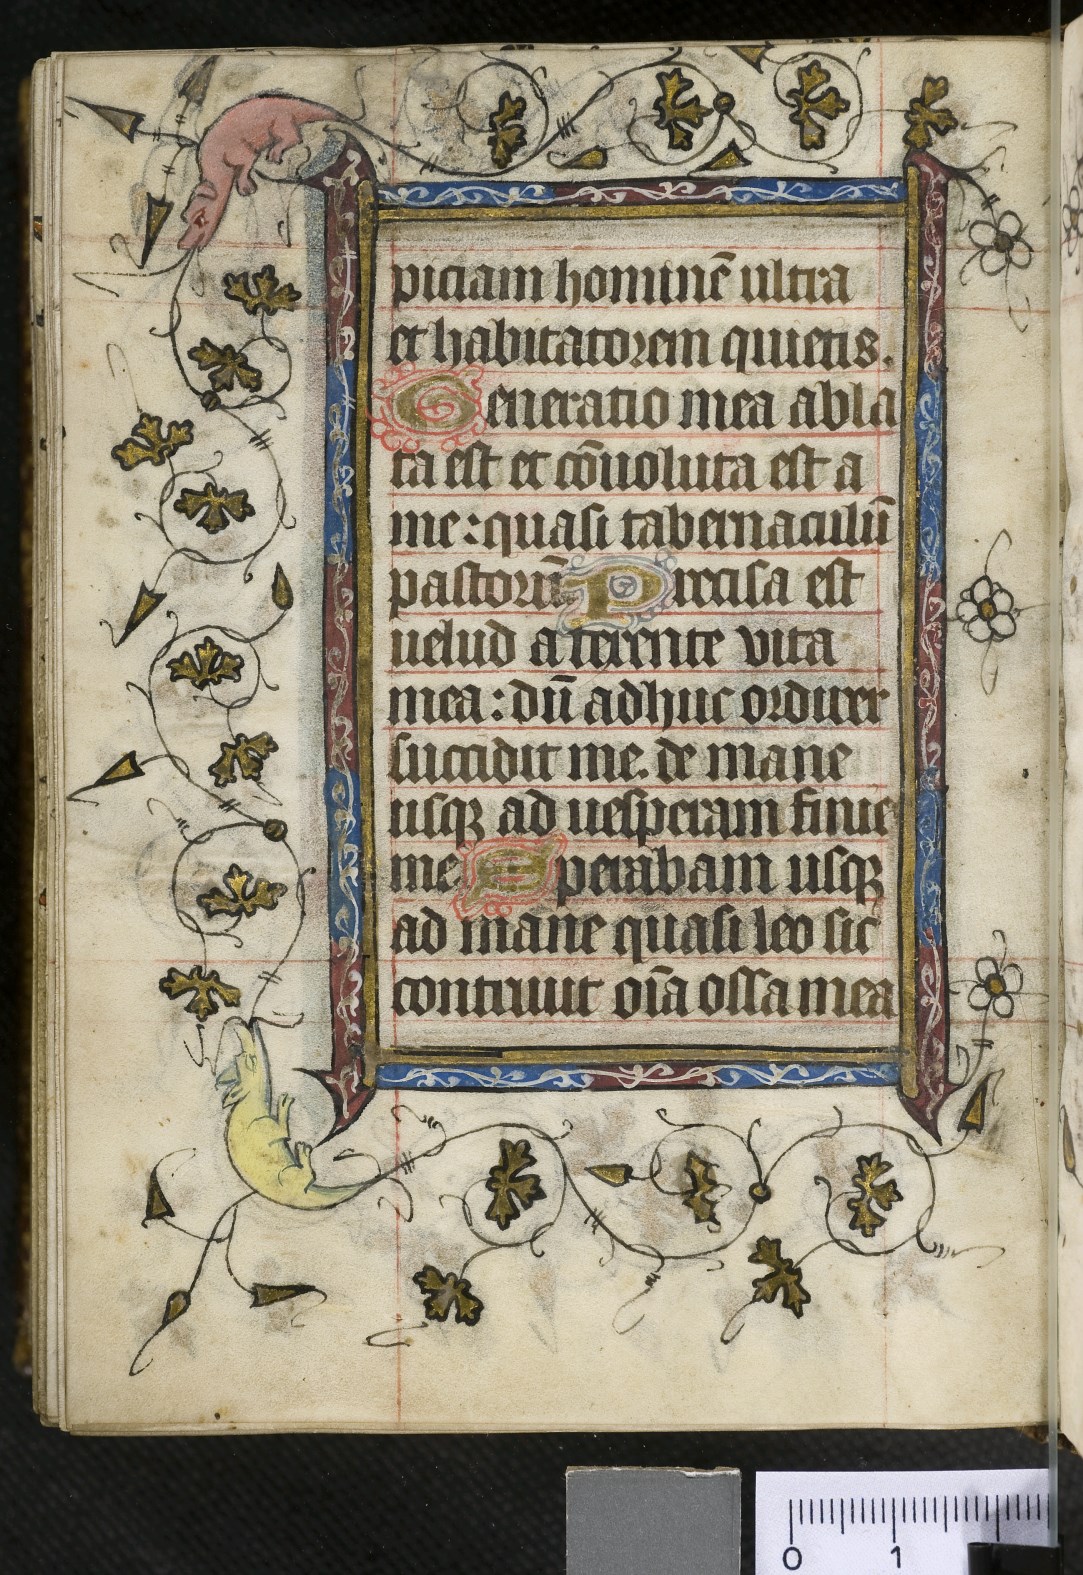 piciam hominē ultra
et habitatorem quietis.
Generatio mea abla
ta est et cōuoluta est a
me: quasi tabernaculū
pastorū Precisa est
uelud a terente vita
mea: dū adhuc ordirer
succidit me. de mane
usqꝫ ad uesperam finie
me. Sperabam usqꝫ
ad mane quasi leo sic
contriuit oīa ossa mea
0 1